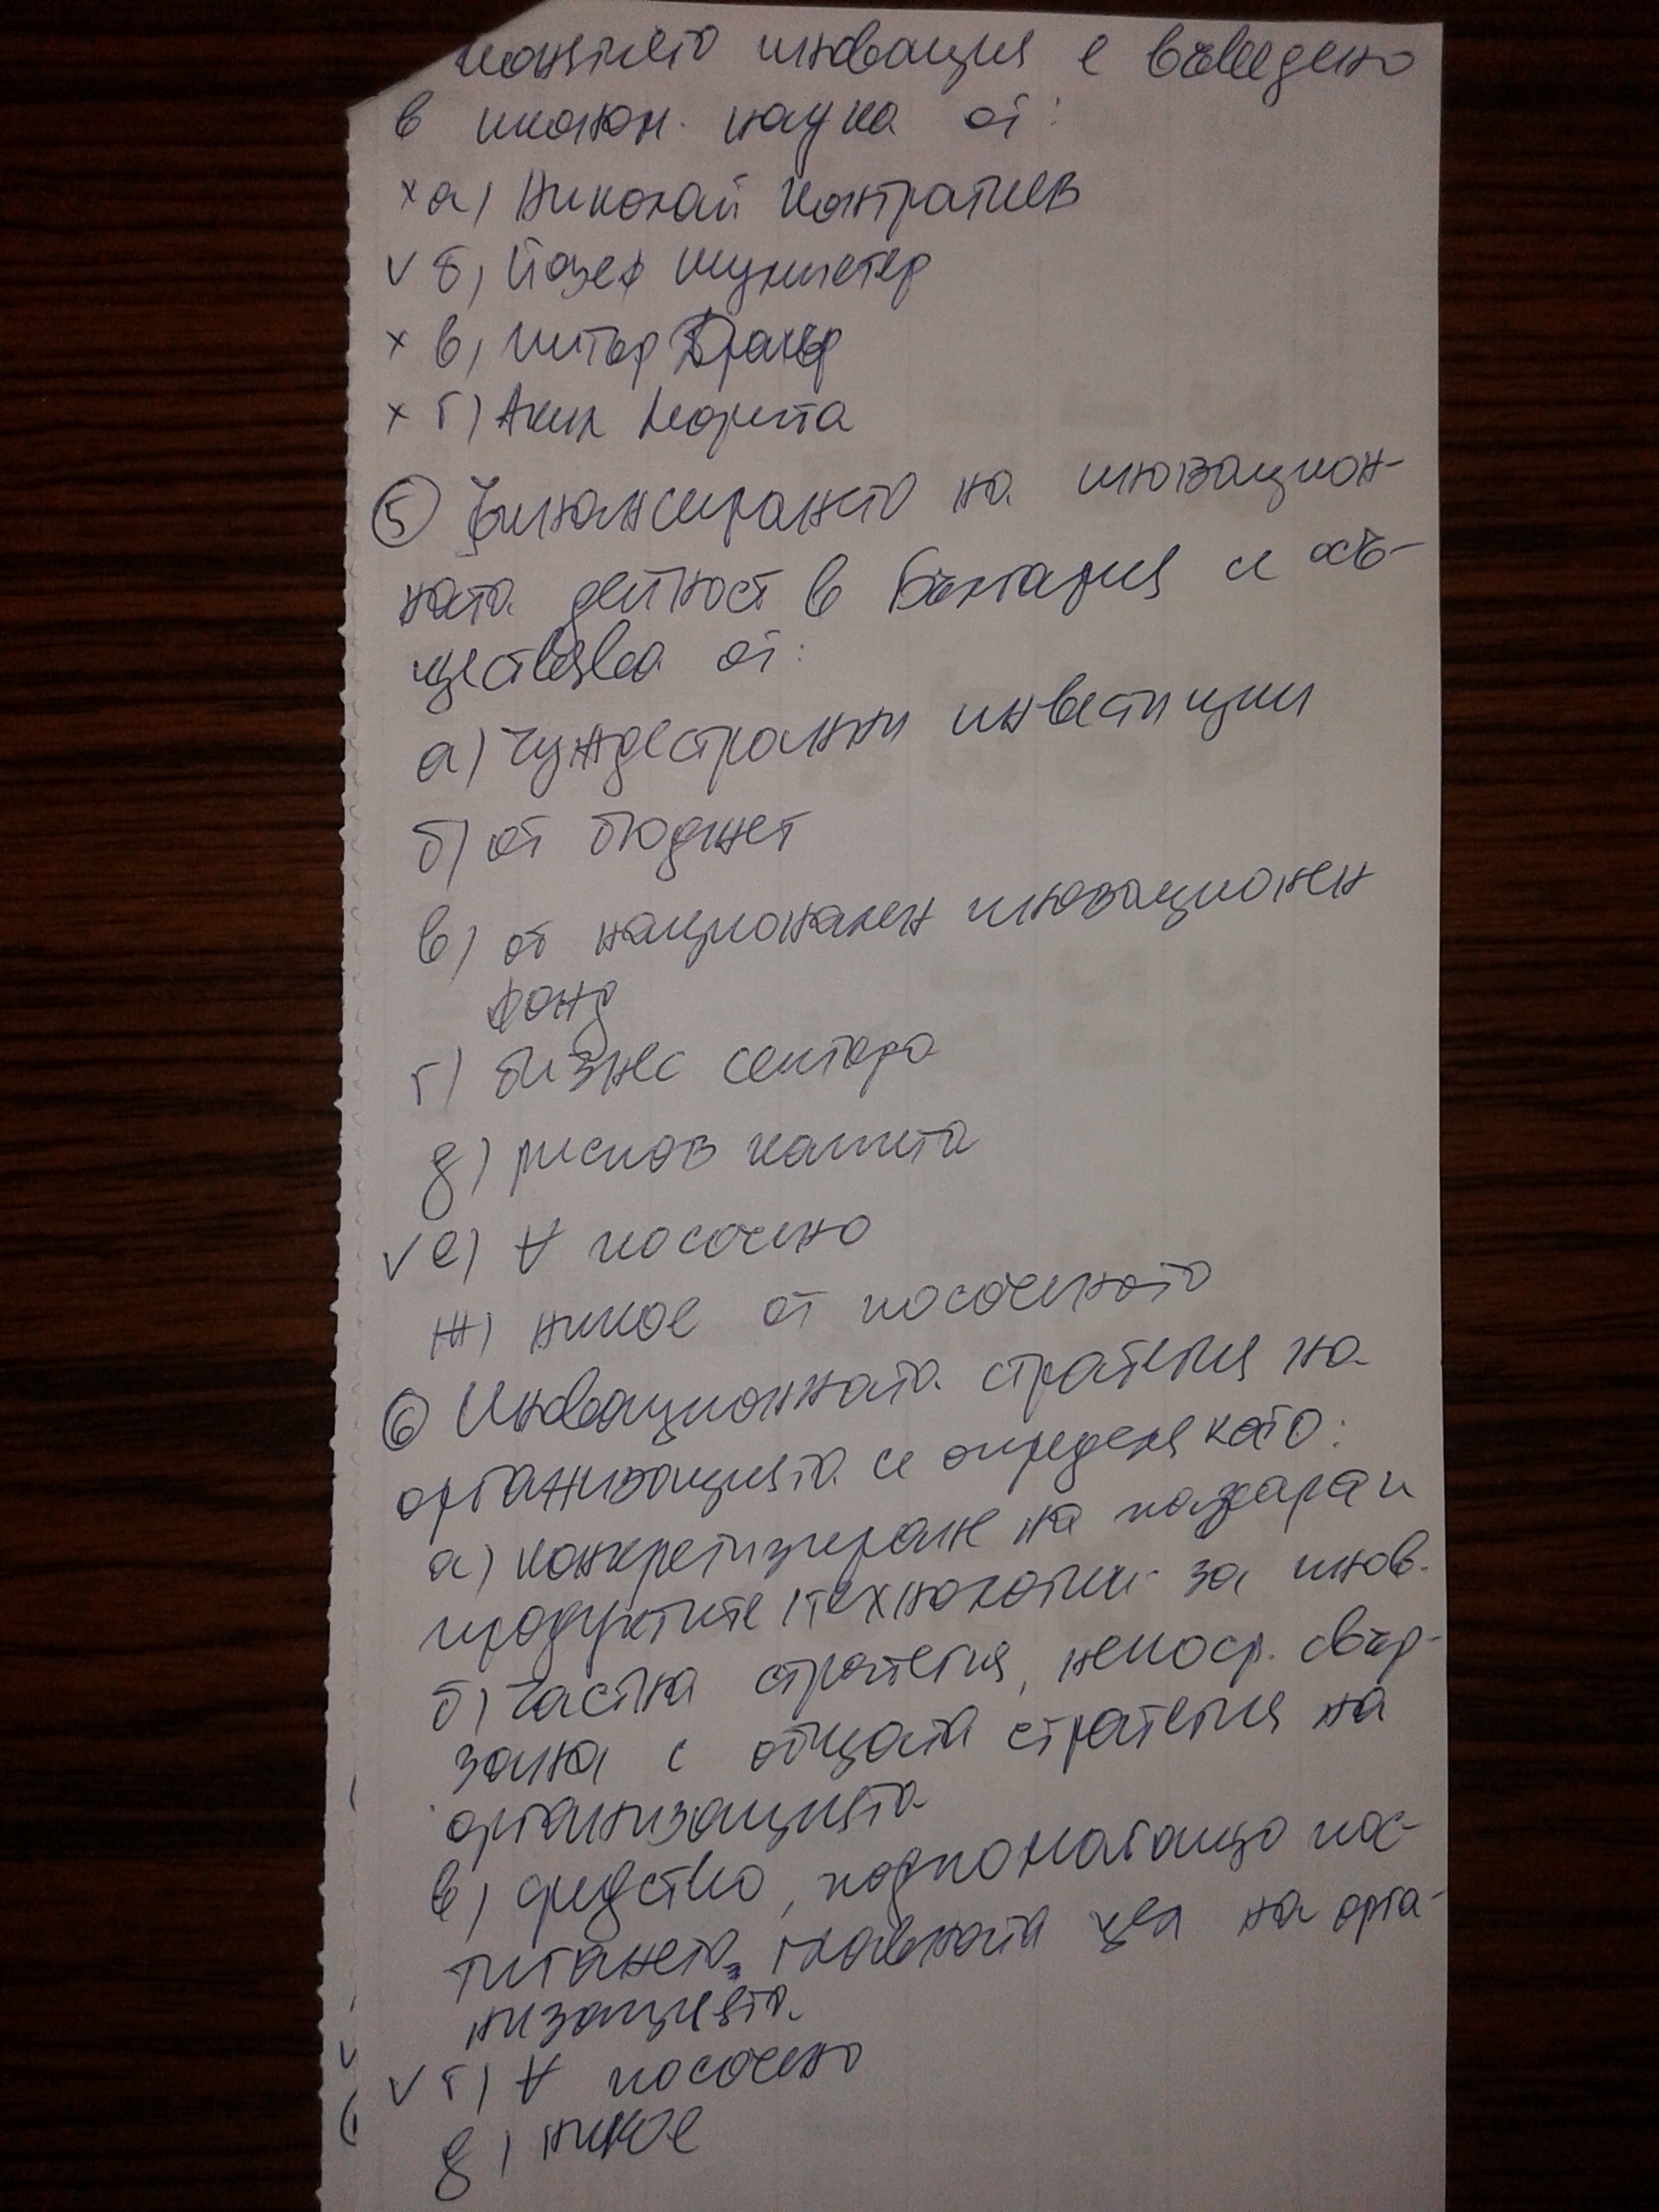 понятието иновация е въведено
в иконом. наука от:
х а) Николай Контратиев
✓ б) Йозеф Шумпетер
х в) Питър Дракър
х г) Акио Морита
⑤ Финансирането на иновацион-
ната дейност в България се осъ-
ществява от:
а) чуждестранни инвестиции
б) от бюджет
в) от национален иновационен
фонд
г) бизнес сектора
д) рисков капитал
✓ е) ∀ посочено
ж) никое от посоченото
⑥ Иновационната стратегия на
организацията се определя като:
а) конкретизиране на пазара и
продуктите/технологии за инов.
б) Частна стратегия, непоср. свър-
зана с общата стратегия на
организацията
в) средство, подпомагащо пос-
тигането главната цел на орга-
низацията.
✓ г) ∀ посочено
д) никое